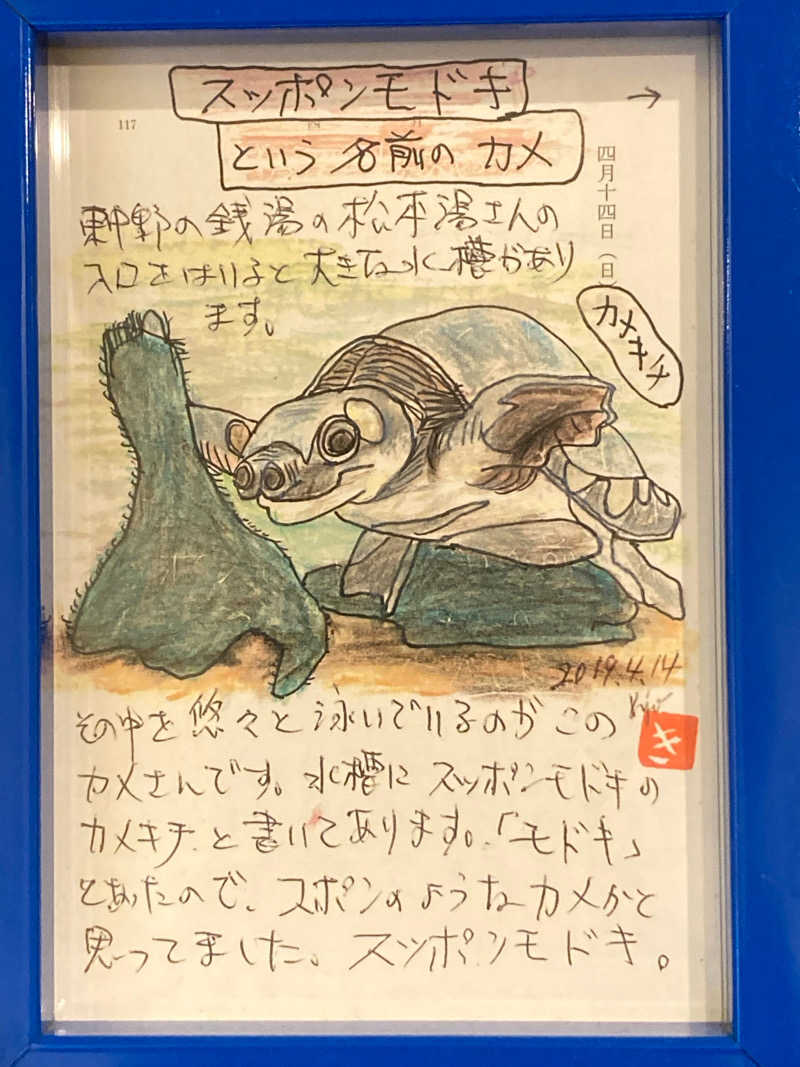 スッポンモドキ
→
という名前のカメ
117
四月十四日(日)
東中野の銭湯の松本湯さんの
入口をはいると大きな水槽があり
ます。
カメキチ
2019.4.14
その中を悠々と泳いでいるのがこの
き
カメさんです。水槽にスッポンモドキの
カメキチと書いてあります。「モドキ」
とあったので、スポンのようなカメかと
思ってました。スッポンモドキ。